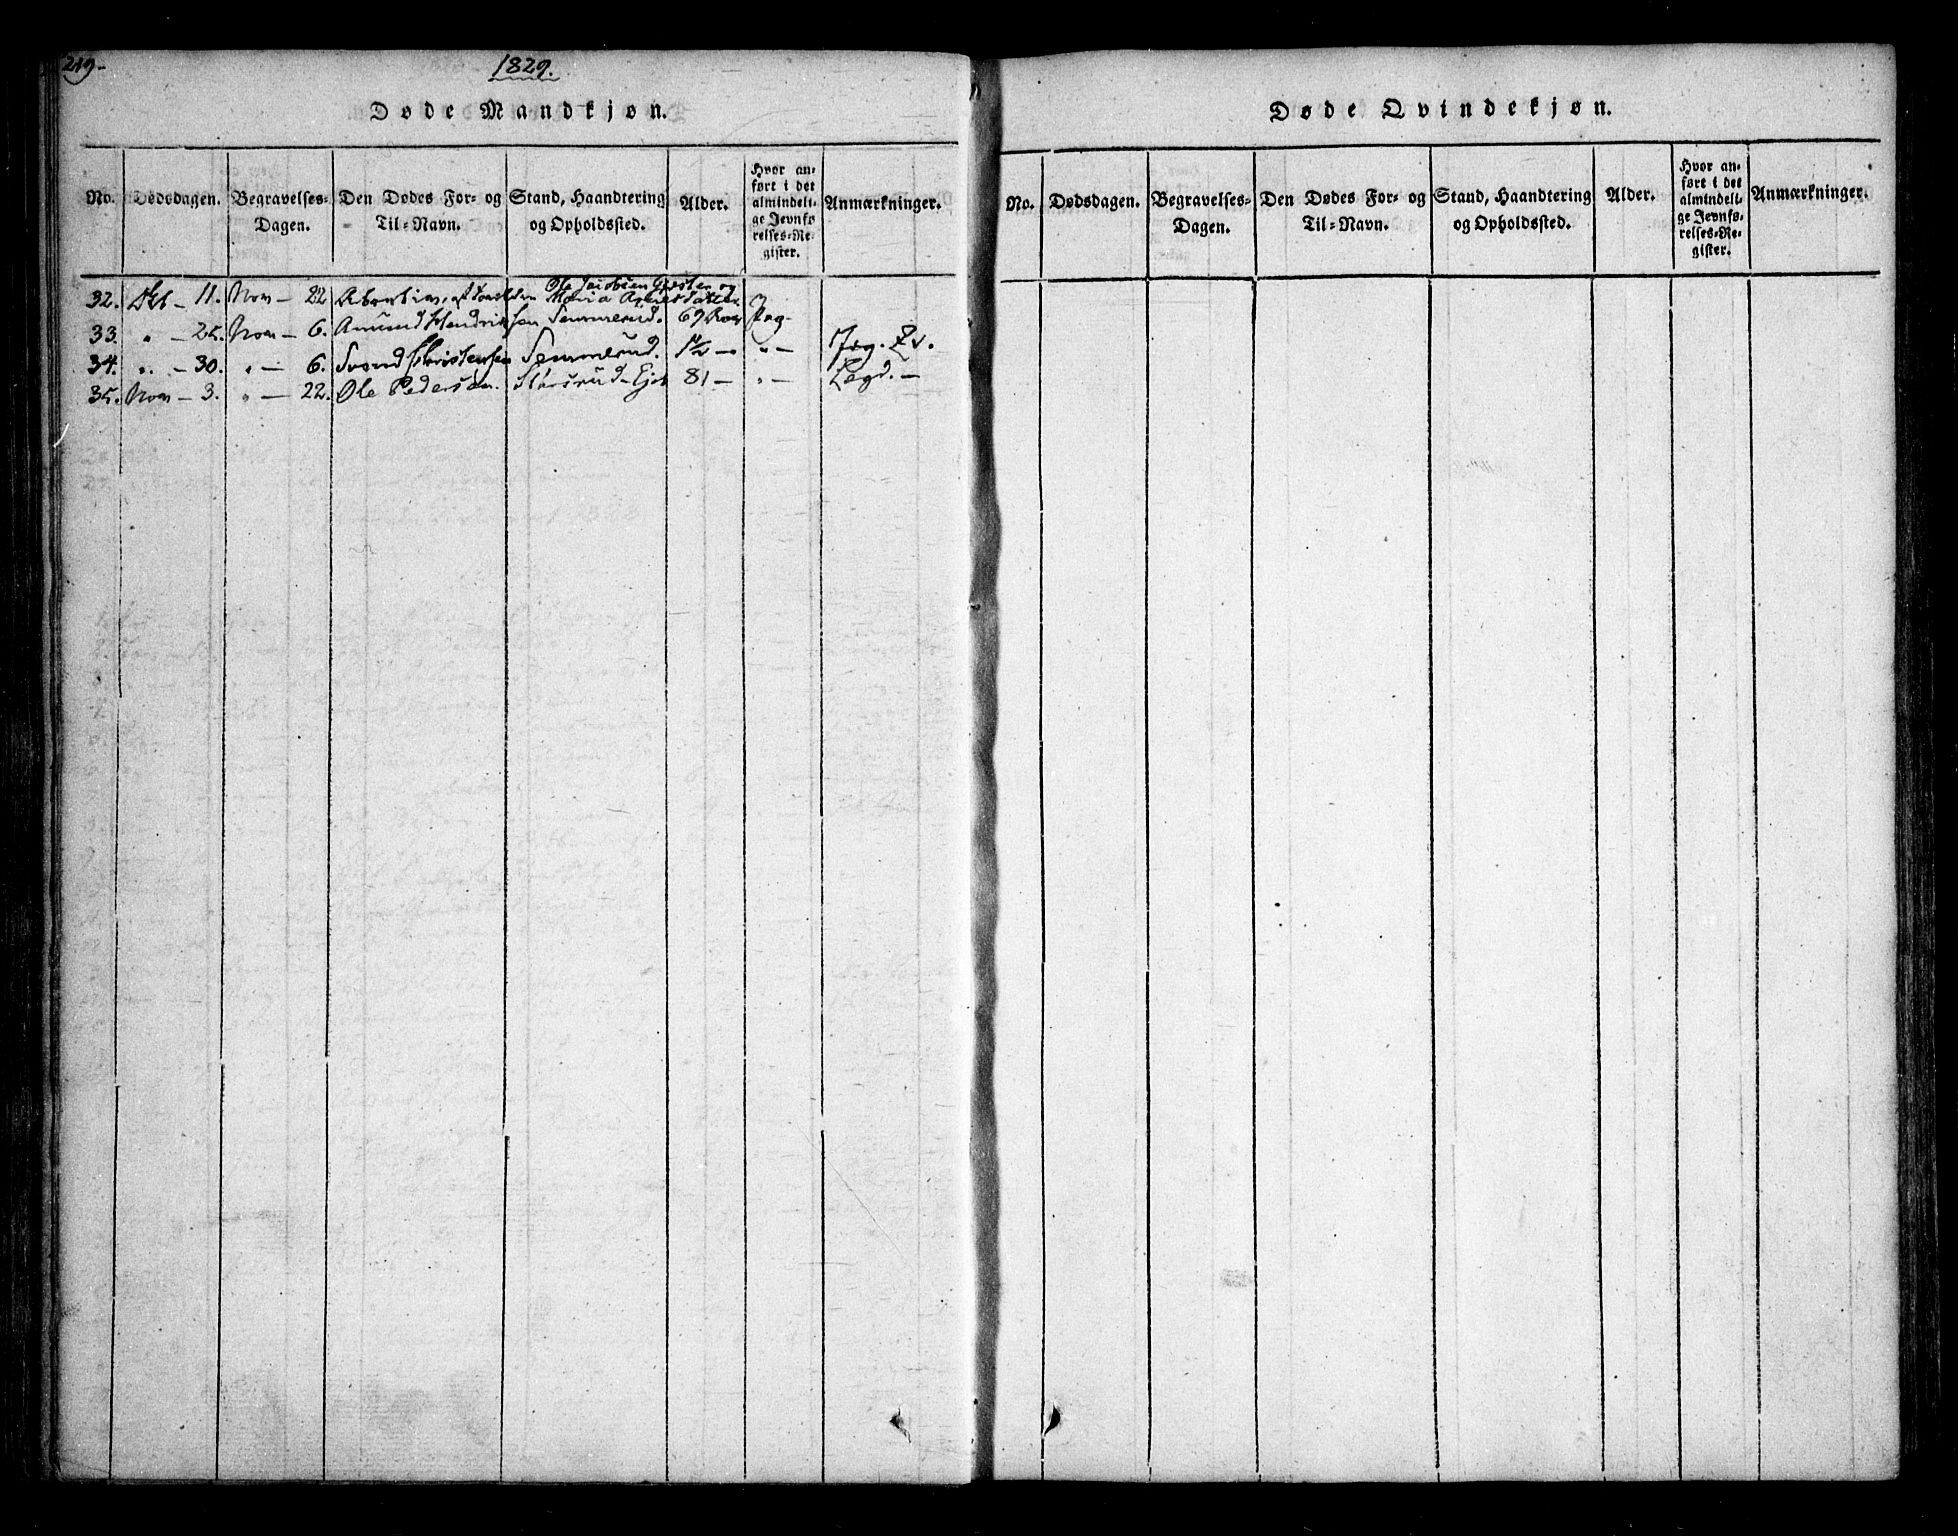 219.
1829.
Døde Mandkjøn.
No. Dødsdagen. Begravelses-Dagen. Den Dødes For- og Til-Navn. Stand, Haandtering og Opholdssted. Alder. Hvor anført i det almindelige Jevnførelses-Register. Anmærkninger.
Ole Jacobsen og
32. Oct – 11. Nov – 22 Maria
33. " – 25. Nov – 6. Amund Hendriksen Semmerud. 69 Jeg-
34. " – 30. " – 6. Svend Christensen Semmerud. 1½ – " – Jeg.
35. Nov – 3. " – 22. Ole Pedersen. Størsrud-Ejet 81 – " – Legd. –
Døde Qvindekjøn.
No. Dødsdagen. Begravelses-Dagen. Den Dødes For- og Til-Navn. Stand, Haandtering og Opholdssted. Alder. Hvor anført i det almindelige Jevnførelses-Register. Anmærkninger.